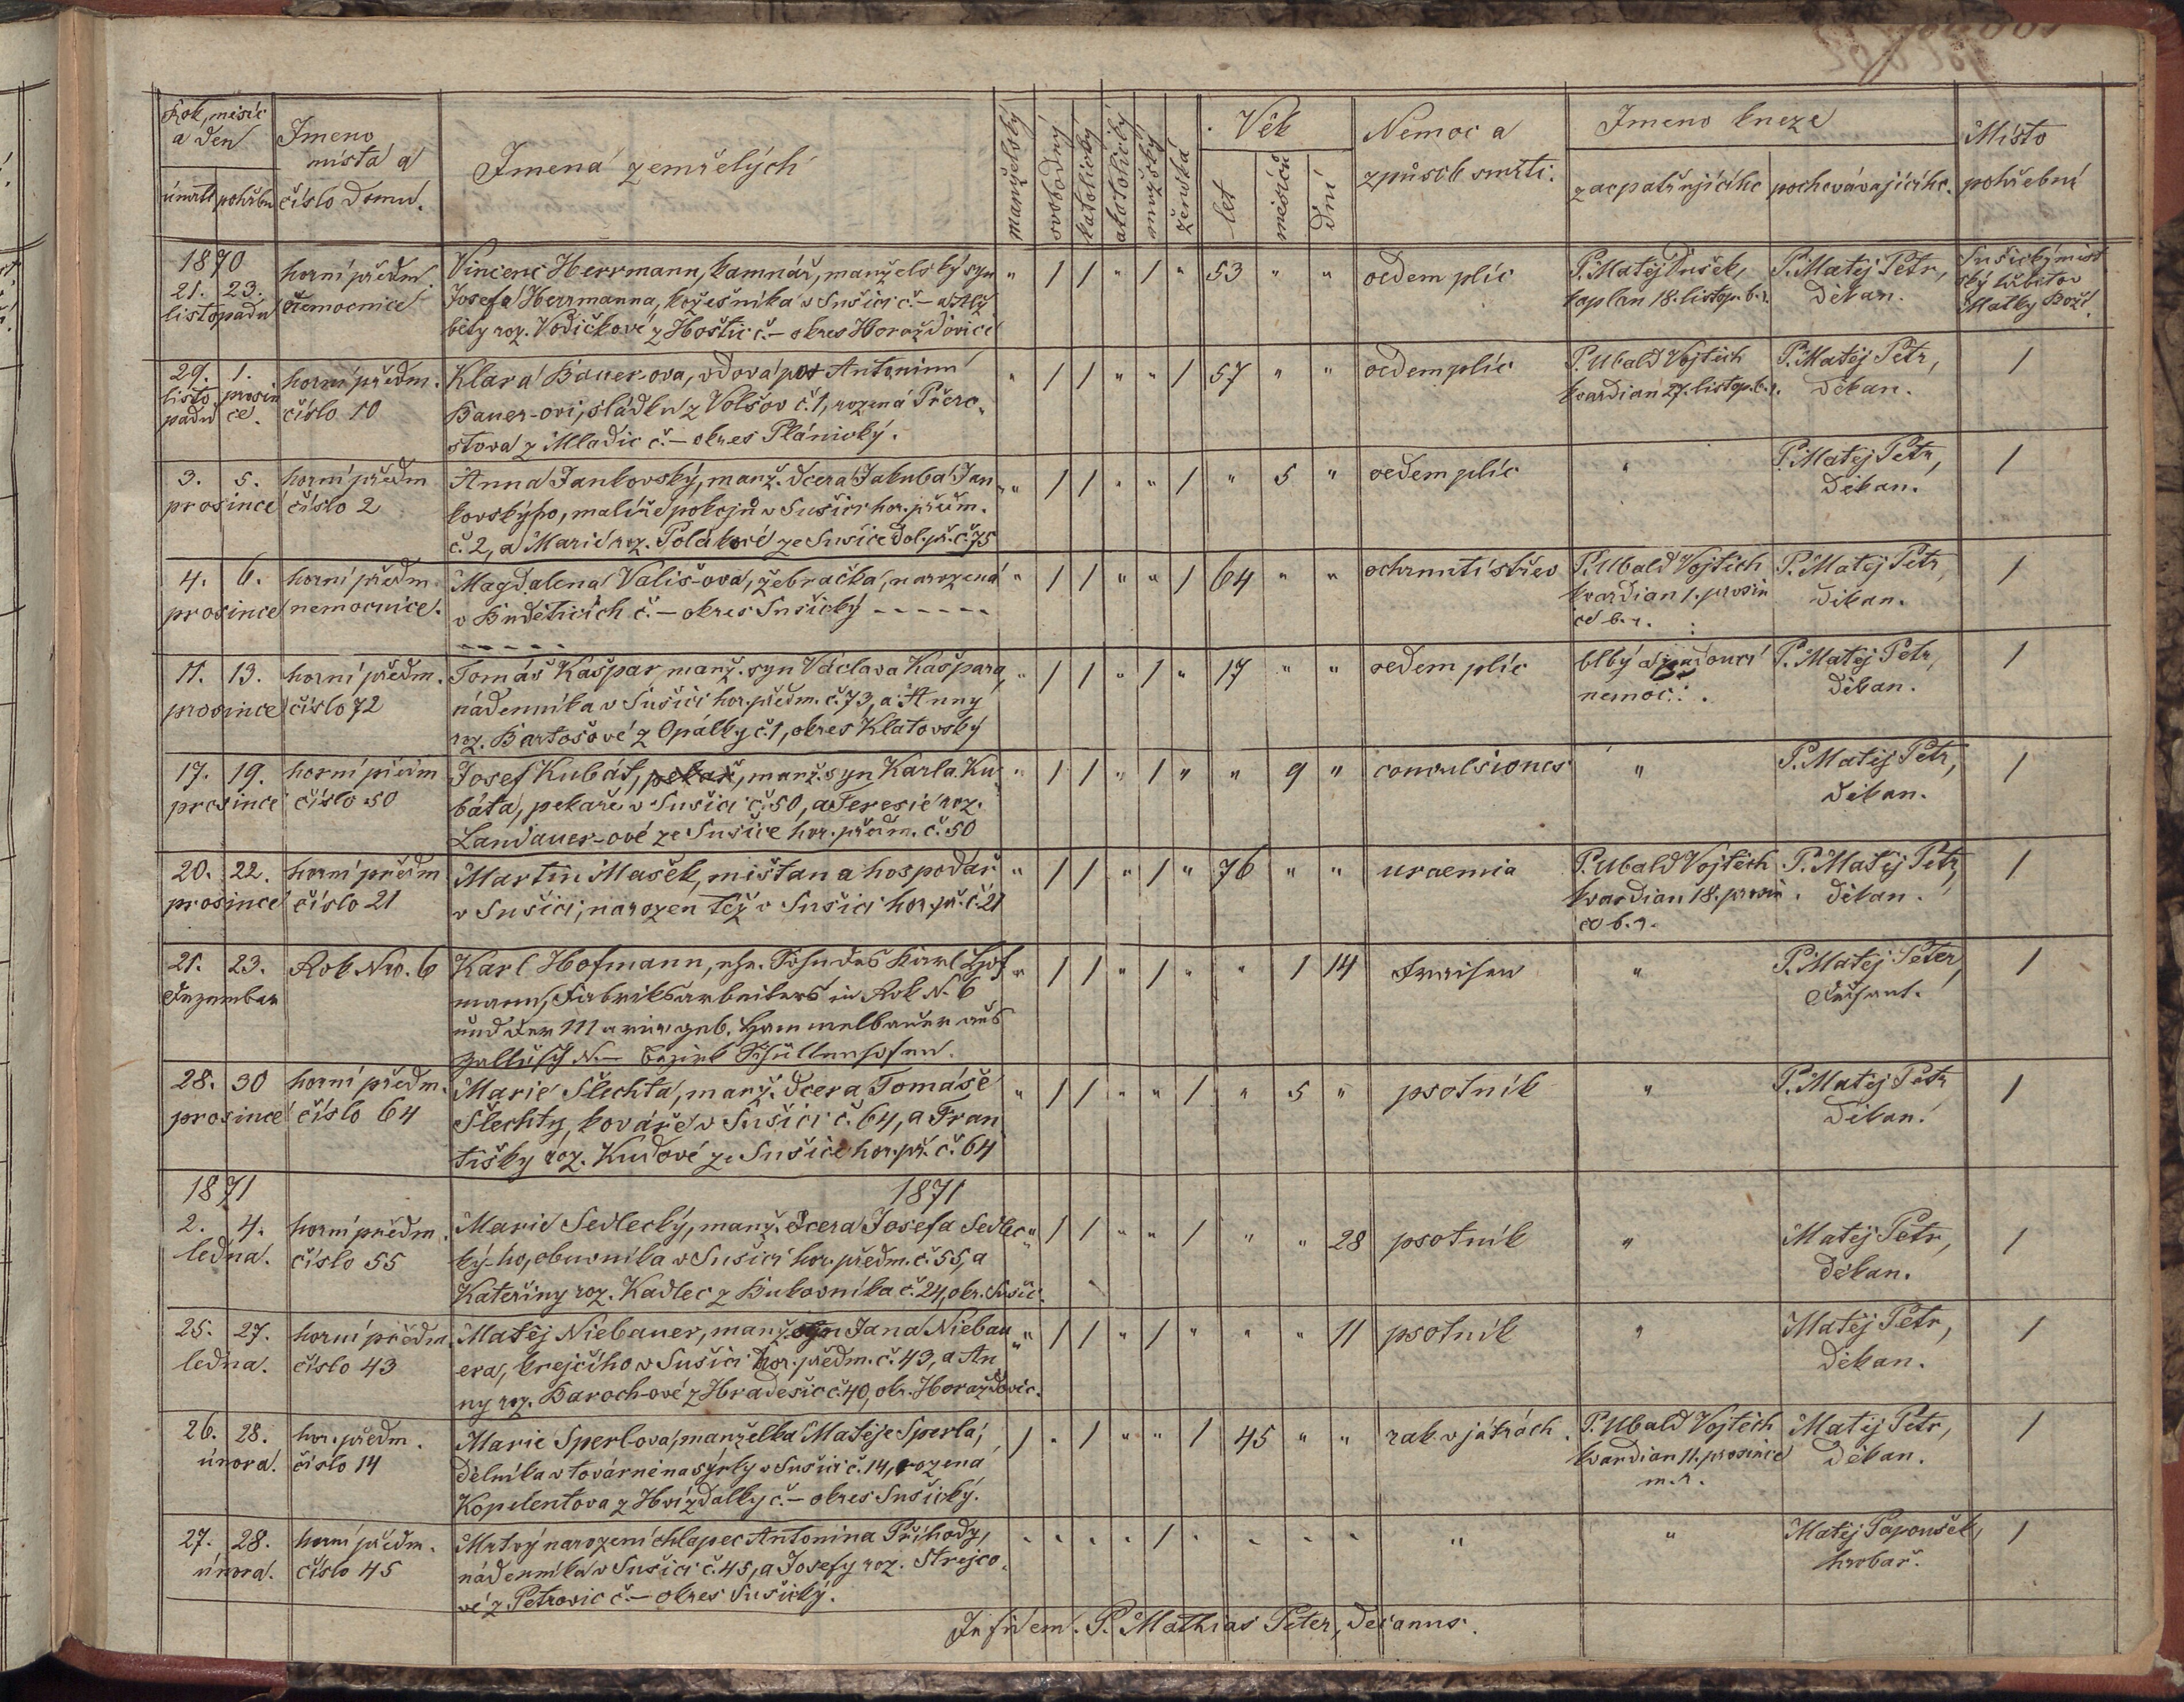 Rok, měsíc
a den
úmrtí pohřbu
Jmeno
místa a
číslo domu.
Jmena zemřelých
manželský
svobodný
katolický
akatolický
mužský
ženská
Věk
let
měsíců
dní
Nemoc a
způsob smrti.
Jmeno kneze
zaopatřujícího
pochovávajícího.
Místo
pohřební
1870
21. 23.
listopadu
horní předm.
nemocnice
Vincenc Herrmann, kamnář, manželský syn
Josefa Herrmanna, kožešníka v Sušici č. – a Alž
běty roz. Vodičkové z Hoštic č. – okres Horažďovice
" / / " / " 53 " "
oedem plic
P. Matěj Dušek,
kaplan 18. listop. b. r.
P. Matěj Petr,
děkan.
Sušický měst
ský hřbitov
Matky Boží.
29. 1.
listo prosin
padu ce.
horní předm.
číslo 10
Klara Bauer-ova, vdova po Antonínu
Bauer-ovi, sládku z Volšov č. 1, rozená Přero-
stova z Mladic č. – okres Plánický.
" / / " " / 57 " "
oedem plic
P. Ubald Vojtěch
kvardian 27. listop. b. r.
P. Matěj Petr,
děkan.
/
3. 5.
prosince
horní předm
číslo 2
Anna Jankovský, manž. dcera Jakuba Jan
kovskýho, malíře pokojů v Sušici hor. předm.
č. 2, a Marie roz. Polákové ze Sušice dol. př. č. 75
" / / " " / " 5 "
oedem plic
"
P. Matěj Petr,
děkan.
/
4. 6.
prosince
horní předm
nemocnice.
Magdalena Vališ-ova, žebračka, narozená
v Budětičích č. – okres Sušický - - - - - -
- - - - -
" / / " " / 64 " "
ochrnutí střev
P. Ubald Vojtěch
kvardian 1. prosin
ce b. r.
P. Matěj Petr,
děkan.
/
11. 13.
prosince
horní předm.
číslo 72
Tomáš Kašpar, manž. syn Václava Kašpara,
nádenníka v Sušici hor. předm. č. 73, a Anny
roz. Bartošové z Opálky č. 1, okres Klatovský
" / / " / " 17 " "
oedem plic
blbý a padoucí
nemoc:.
P. Matěj Petr,
děkan.
/
17. 19.
prosince
horní předm
číslo 50
Josef Kubát, pekař, manž. syn Karla Ku-
báta, pekaře v Sušici č. 50, a Teresie roz.
Landauer-ové ze Sušice hor. předm. č. 50
" / / " / " " 9 "
convulsiones
"
P. Matěj Petr,
děkan.
/
20. 22.
prosince
horní předm
číslo 21
Martin Mašek, měšťan a hospodář
v Sušici, narozen též v Sušici hor. př. č. 21
" / / " / " 76 " "
uraemia
P. Ubald Vojtěch
kvardian 18. prosin
ce b. r.
P. Matěj Petr,
děkan.
/
21. 23.
Dezember
Rok Nro. 6
Karl Hofmann, ehe. Sohn des Karl Hof
mann, Fabriksarbeiters in Rok N. 6
und der Maria geb. Hammelbauer aus
N. – Bezirk Schüttenhofen.
" / / " / " " 1 14
Fraisen
"
P. Matěj Peter,
Dechant.
/
28. 30
prosince
horní předm.
číslo 64
Marie Šlechta, manž. dcera Tomáše
Šlechty, kováře v Sušici č. 64, a Fran
tišky roz. Kudové ze Sušice hor. př. č. 64
" / / " " / " 5 "
psotník
"
P. Matěj Petr
děkan.
/
1871
1871
2. 4.
ledna.
horní předm.
číslo 55
Marie Sedlecký, manž. dcera Josefa Sedlec-
kýho, obuvníka v Sušici hor. předm. č. 55, a
Kateřiny roz. Kadlec z Bukovníka č. 24, okr. Sušic.
" / / " " / " " 28
psotník
"
Matěj Petr,
děkan.
/
25. 27.
ledna.
horní předm.
číslo 43
Matěj Niebauer, manž. syn Jana Niebau
era, krejčího v Sušici hor. předm. č. 43, a An
ny roz. Baroch-ové z Hradešic č. 40, okr. Horažďovic.
" / / " / " " " 11
psotník
"
Matěj Petr,
děkan.
/
26. 28.
února.
hor. předm.
číslo 14
Marie Sperlova, manželka Matěje Sperla,
dělníka v továrně na sýrky v Sušici č. 14, rozena
Kopelentova z Hvízdalky č. – okres Sušický.
/ " / " " / 45 " "
rak v játrách.
P. Ubald Vojtěch
kvardian 11. prosince
m. r.
Matěj Petr,
děkan.
/
27. 28.
února.
horní předm.
číslo 45
Mrtvý narozený chlapec Antonina Příhody,
nádenníka v Sušici č. 45, a Josefy roz. Strejco-
vé z Petrovic č. – okres Sušický.
" " " " / " " " "
"
"
Matěj Papoušek,
hrobař.
/
In fidem. P. Mathias Peter, decanus.